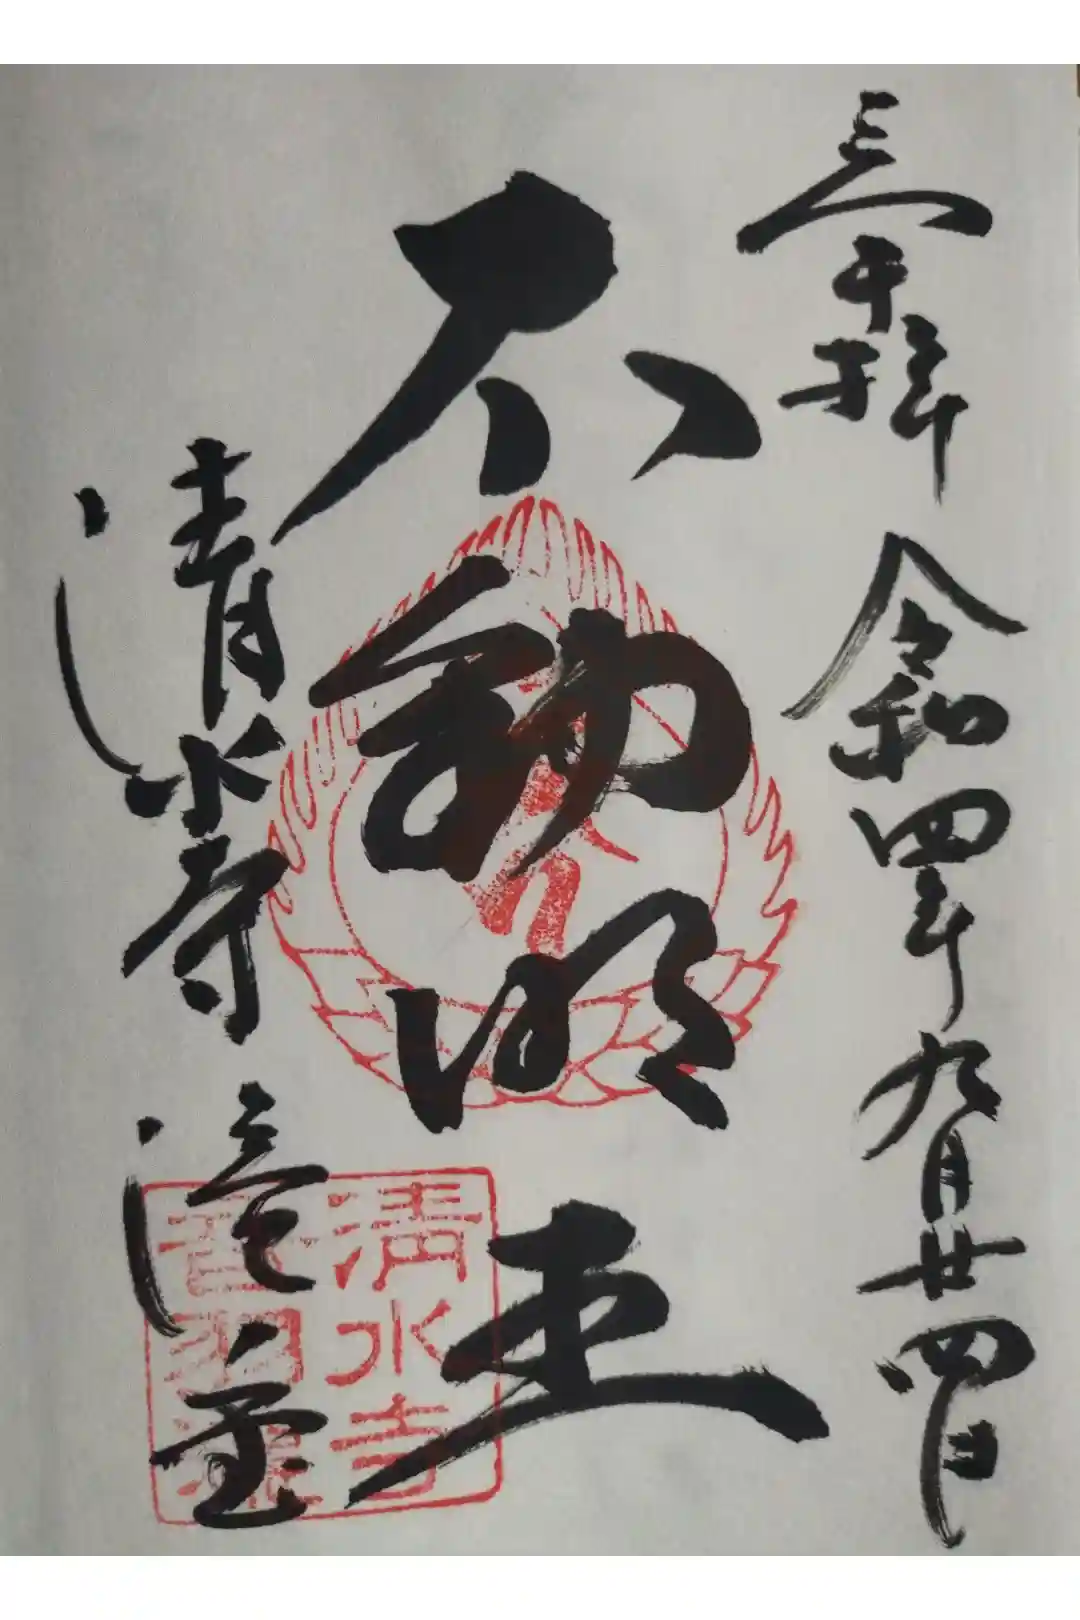 奉拝 令和四年九月廿四日
不動明王
清水寺 滝堂
清水寺
音羽